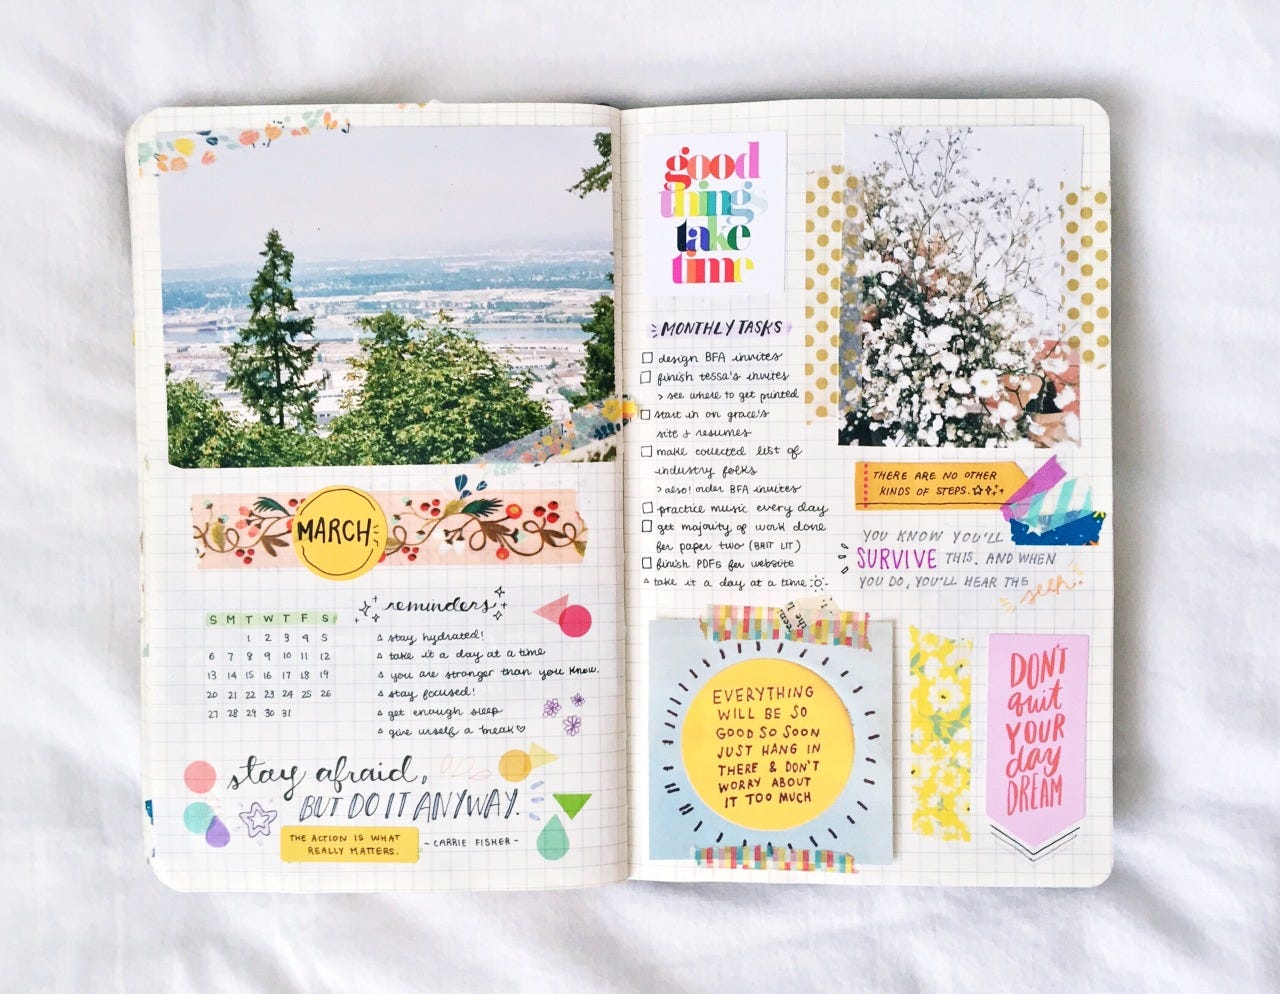 MARCH
S M T W T F S
1 2 3 4 5
6 7 8 9 10 11 12
13 14 15 16 17 18 19
20 21 22 23 24 25 26
27 28 29 30 31
reminders
stay hydrated!
take it a day at a time
you are stronger than you know.
stay focused!
get enough sleep
give urself a break♡
stay afraid,
BUT DO IT ANYWAY.
THE ACTION IS WHAT
REALLY MATTERS.
- CARRIE FISHER -
good
things
take
time
MONTHLY TASKS
design BFA invites
finish tessa's invites
> see where to get printed
start in on grace's
site & resumes
make collected list of
industry folks
> also! order BFA invites
practice music every day
get majority of work done
for paper two (BRIT LIT)
finish PDFs for website
take it a day at a time
THERE ARE NO OTHER
KINDS OF STEPS.
YOU KNOW YOU'LL
SURVIVE THIS. AND WHEN
YOU DO, YOU'LL HEAR THE
EVERYTHING
WILL BE SO
GOOD SO SOON
JUST HANG IN
THERE & DON'T
WORRY ABOUT
IT TOO MUCH
DON'T
quit
YOUR
day
DREAM